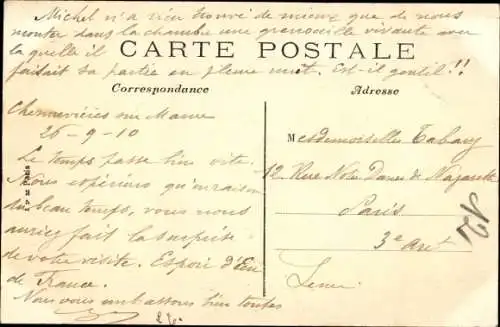 Michel n'a rien trouvé de mieux que de nous
monter dans la chambre une grenouille vivante avec
laquelle il
faisait sa partie en pleine nuit. Est-il gentil!!
CARTE POSTALE
Correspondance
Adresse
Chennevières sur Marne
26-9-10
Le temps passe bien vite.
Nous espérions qu'en raison
du beau temps, vous nous
auriez fait la surprise
de votre visite. Espoir d'
de France.
Nous vous embrassons bien toutes
Mesdemoiselles Tabary
12, Rue Notre Dame de Nazareth
Paris
3e Arrt